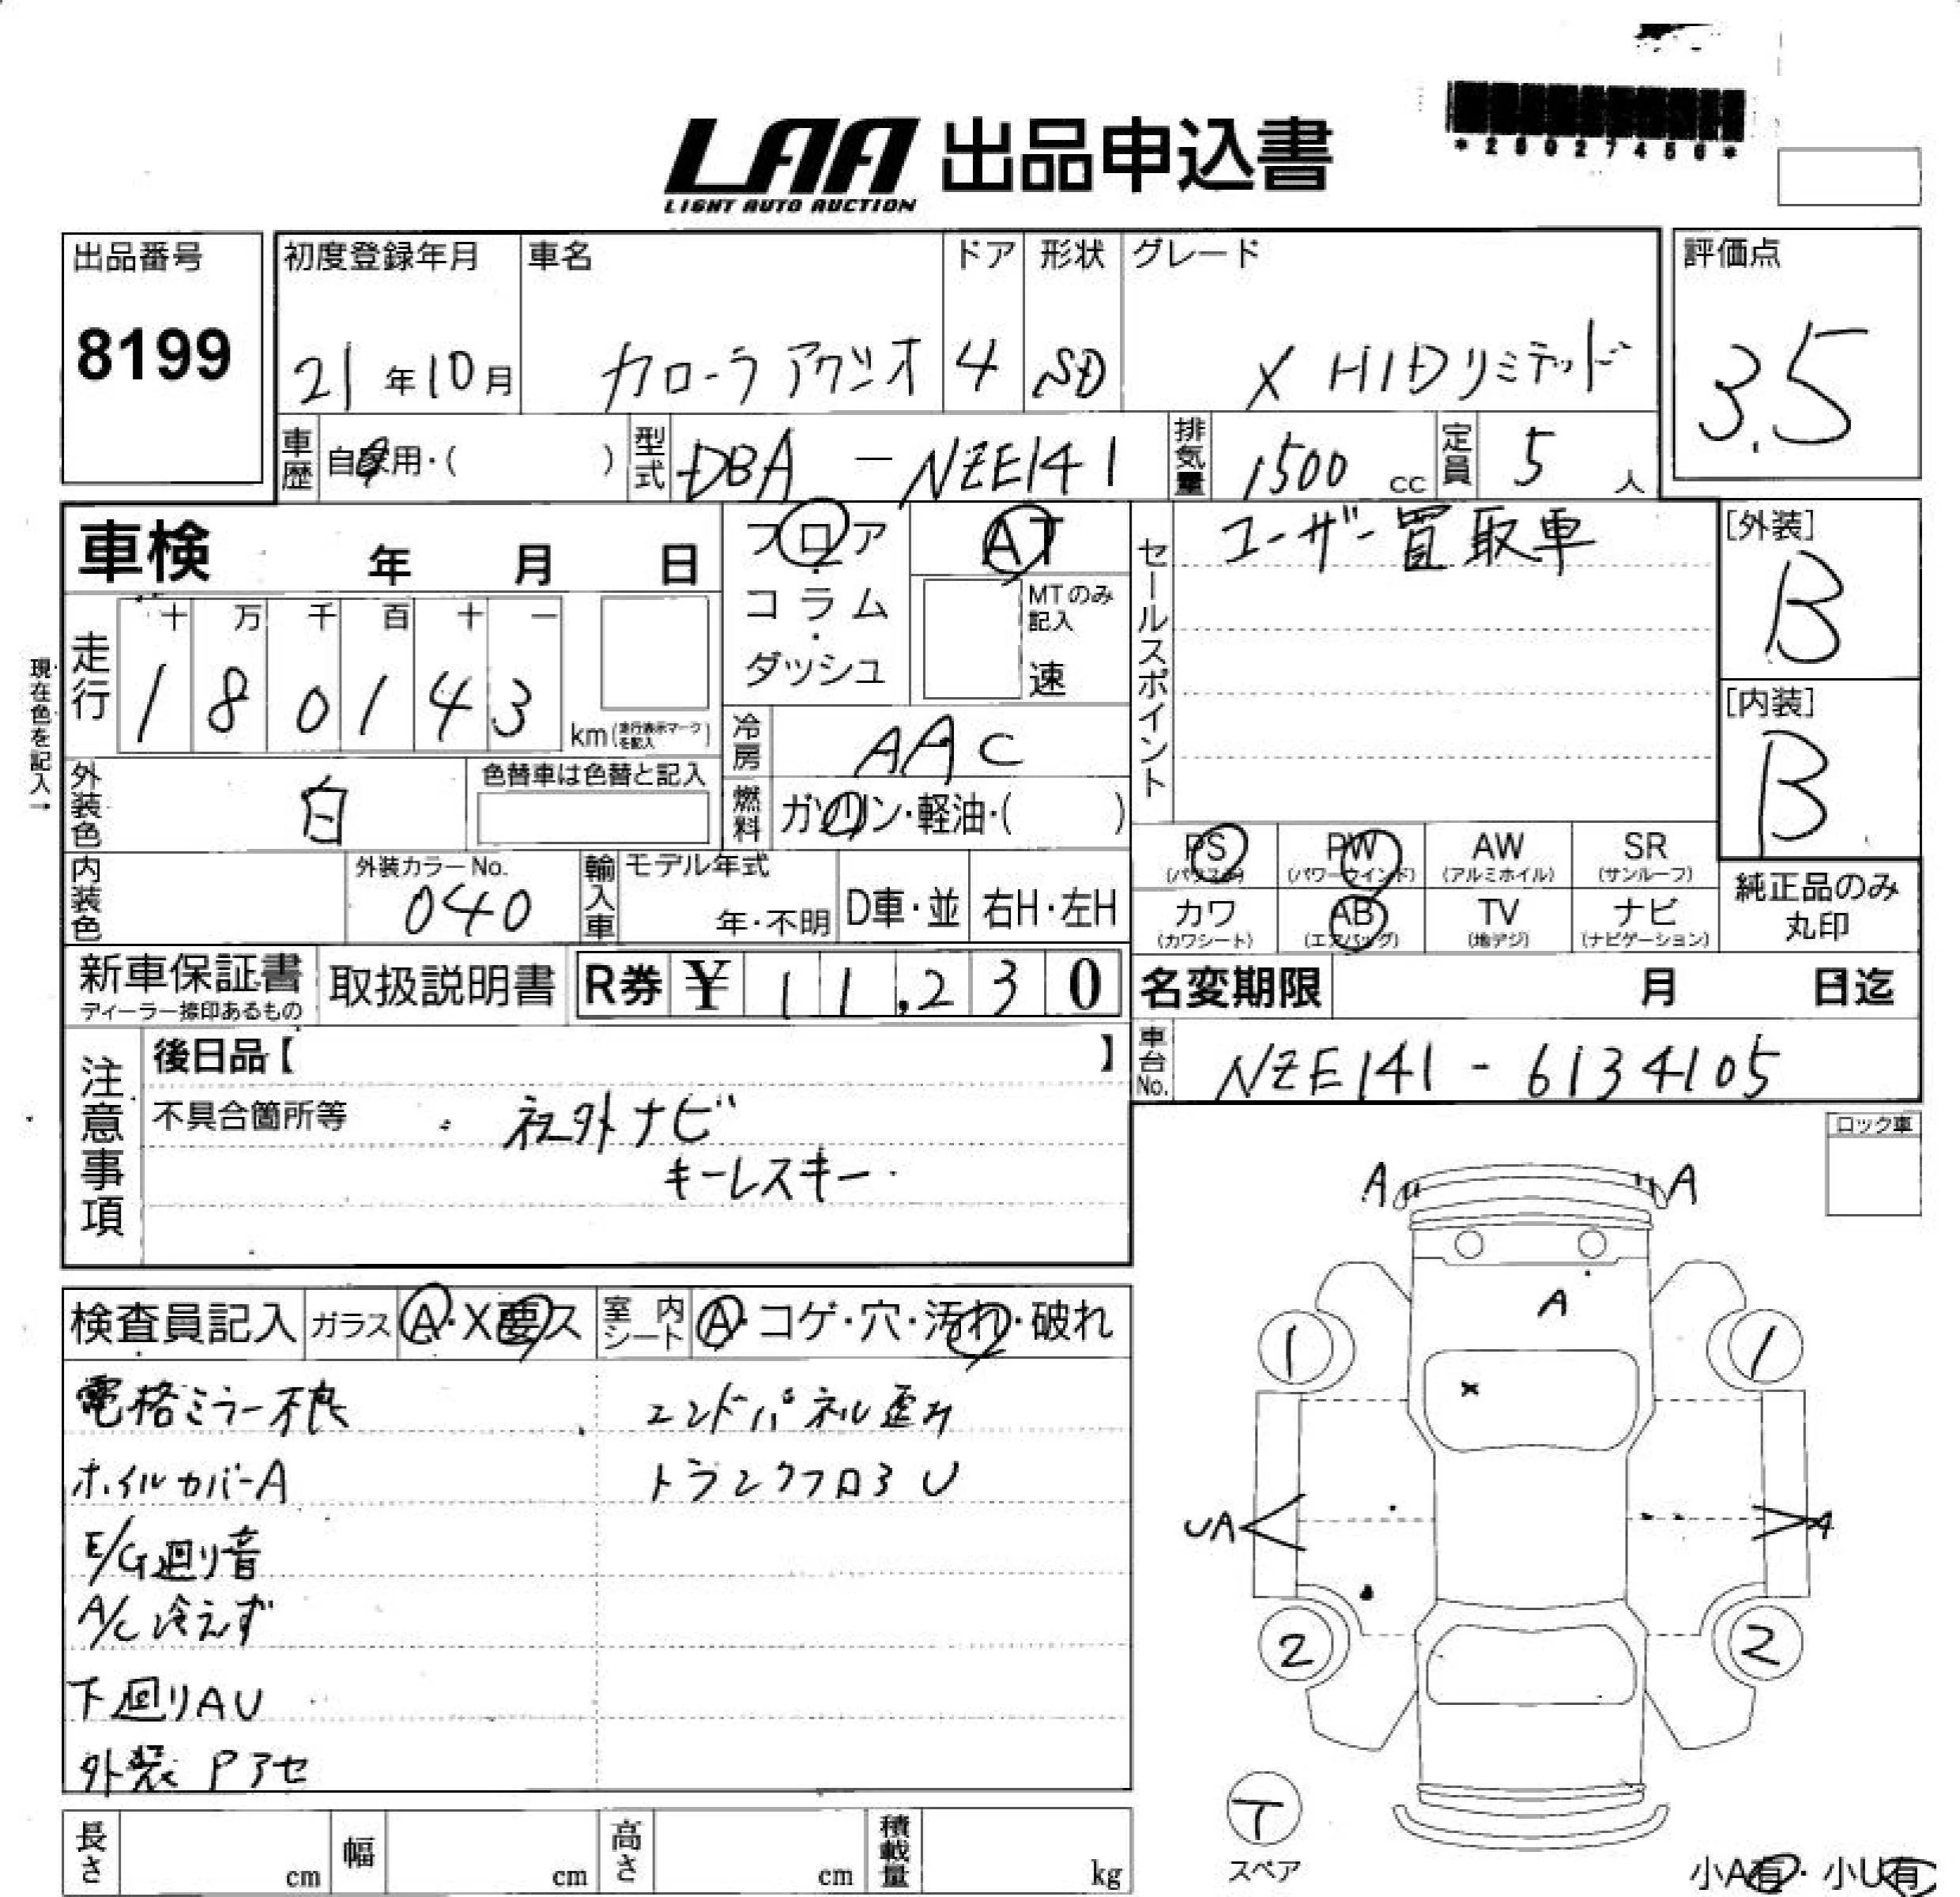 LAA 出品申込書
LIGHT AUTO AUCTION
*26027456*
出品番号 8199
初度登録年月 21年10月
車名 カローラアクシオ
ドア 4
形状 SD
グレード X HIDリミテッド
評価点 3.5
車歴 自家用・( )
型式 DBA - NZE141
排気量 1500 cc
定員 5 人
車検 年 月 日
フロア・コラム・ダッシュ
AT
MTのみ記入 速
セールスポイント ユーザー買取車
[外装] B
[内装] B
現在色を記入→
走行 十 万 千 百 十 一
1 8 0 1 4 3 km(走行表示マークを記入)
冷房 AAC
外装色 白
色替車は色替と記入
燃料 ガソリン・軽油・( )
内装色
外装カラーNo. 040
輸入車 モデル年式 年・不明
D車・並
右H・左H
PS (パワステ)
PW (パワーウインド)
AW (アルミホイル)
SR (サンルーフ)
カワ (カワシート)
AB (エアバッグ)
TV (地デジ)
ナビ (ナビゲーション)
純正品のみ丸印
新車保証書
ディーラー捺印あるもの
取扱説明書
R券 ¥ 11,230
名変期限 月 日迄
車台No. NZE141 - 6134105
注意事項
後日品【 】
不具合箇所等 ・社外ナビ
キーレスキー
ロック車
検査員記入
ガラス A・X要ス
室内シート A・コゲ・穴・汚れ・破れ
電格ミラー不良
エンドパネル歪み
ホイルカバーA
トランクフロアU
E/G廻り音
A/C冷えず
下廻りAU
外装Pアセ
A A
A
1 1
X
UA A
2 2
T
スペア
小A有・小U有
長さ cm
幅 cm
高さ cm
積載量 kg